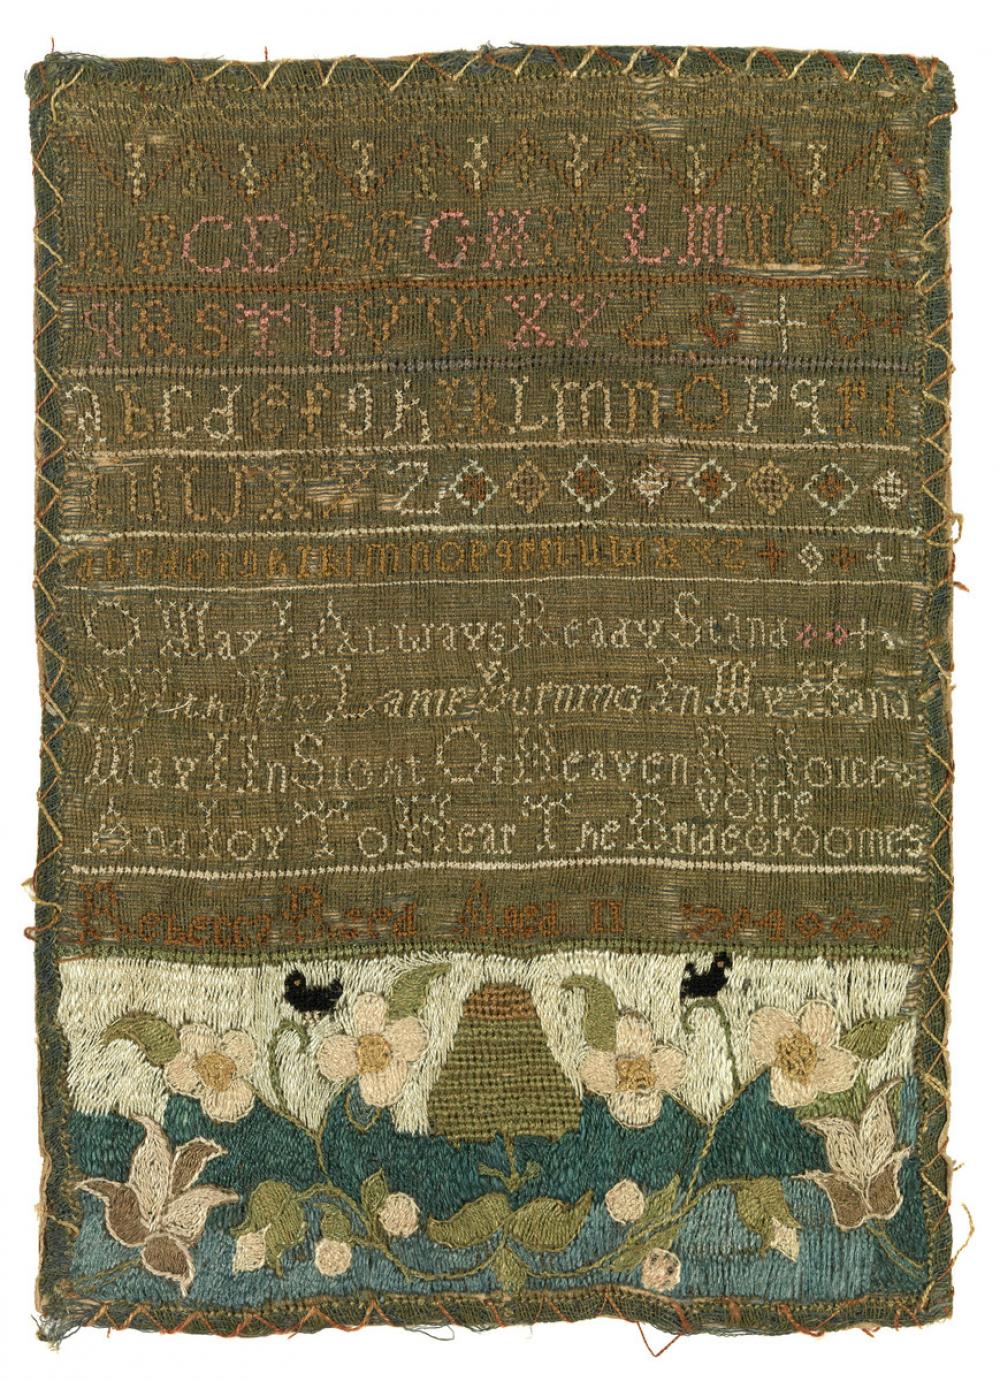 ABCDEFGHIKLMNOP
QRSTUVWXYZ
abcdefghiklmnopqr
tuwxyz
abcdefghiklmnopqrstuwxyz
O May I Always Ready Stand
With My Lamp Burning In My Hand
May I In Sight Of Heaven Rejoice
voice
And Ioy To Hear The Bridegroomes
Rebecca Reed Aged 11